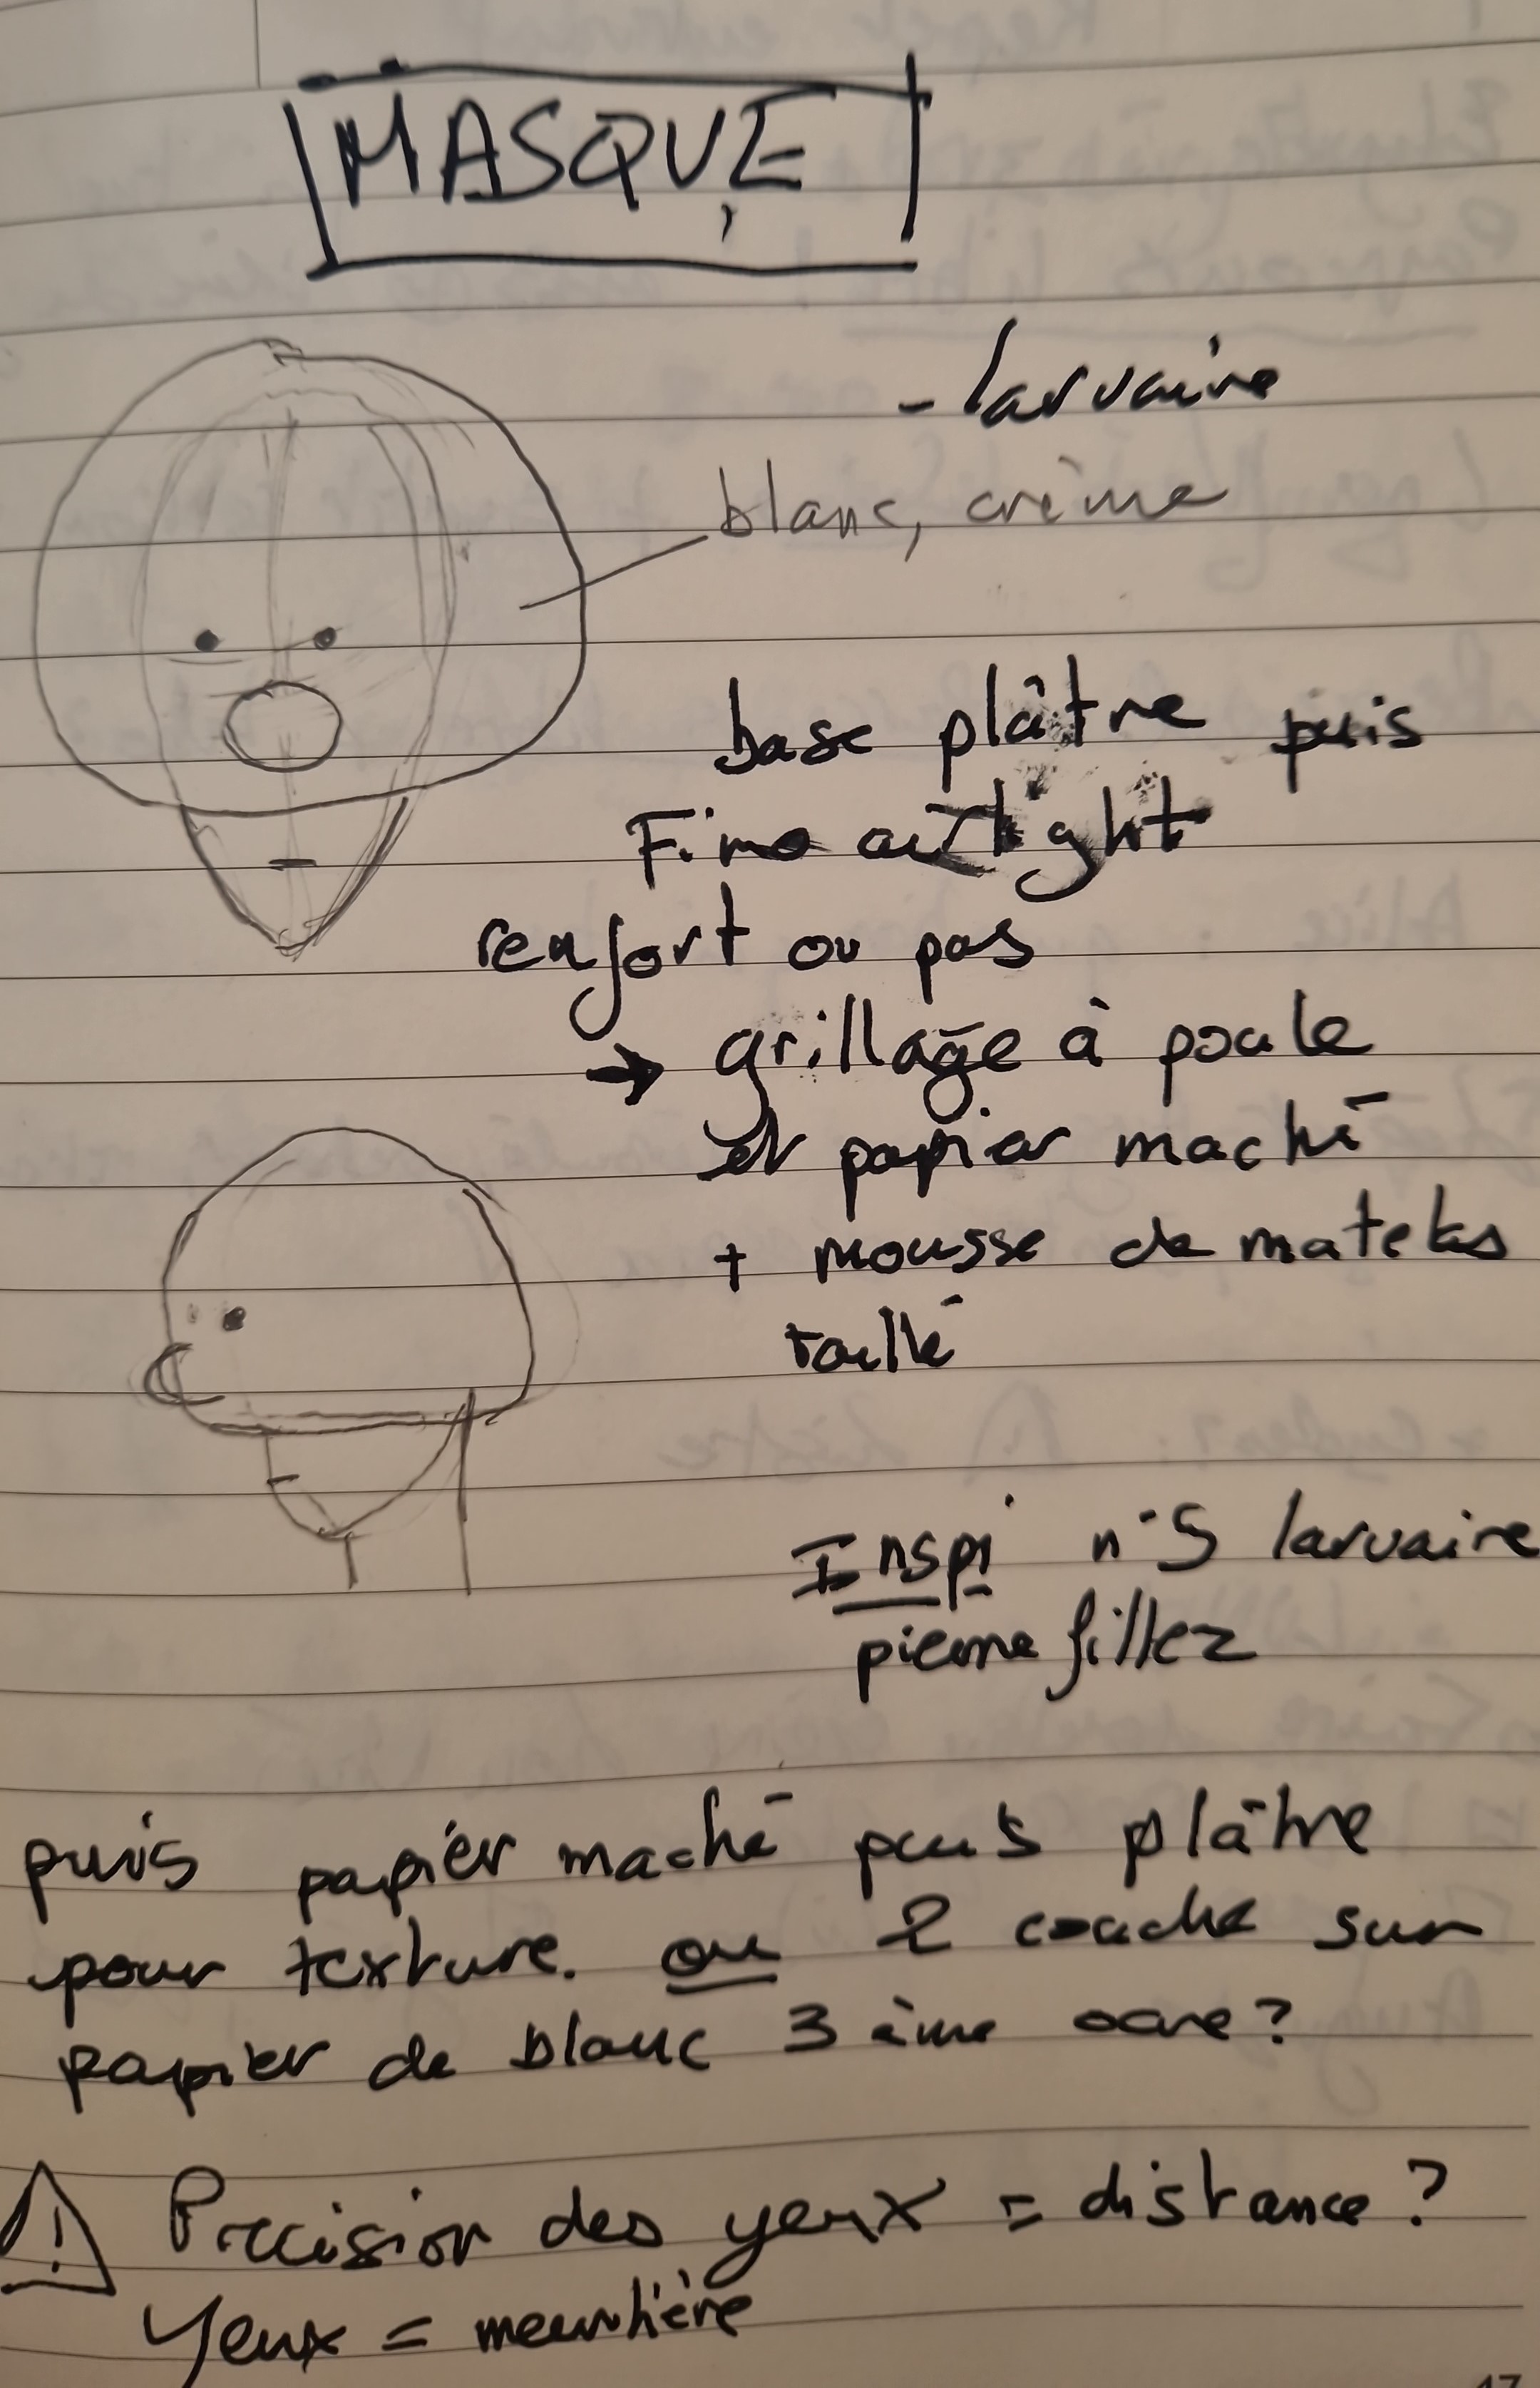 MASQUE
- larvaire
blanc, crème
base plâtre puis
Fimo air light
renfort ou pas
→ grillage à poule
et papier maché
+ mousse de matelas
taillé
Inspi n°5 larvaire
pierre fillez
puis papier maché puis plâtre
pour texture. ou 2 couche sur
papier de blanc 3 ème ocre?
! Precision des yeux = distance?
Yeux = meurtière
17